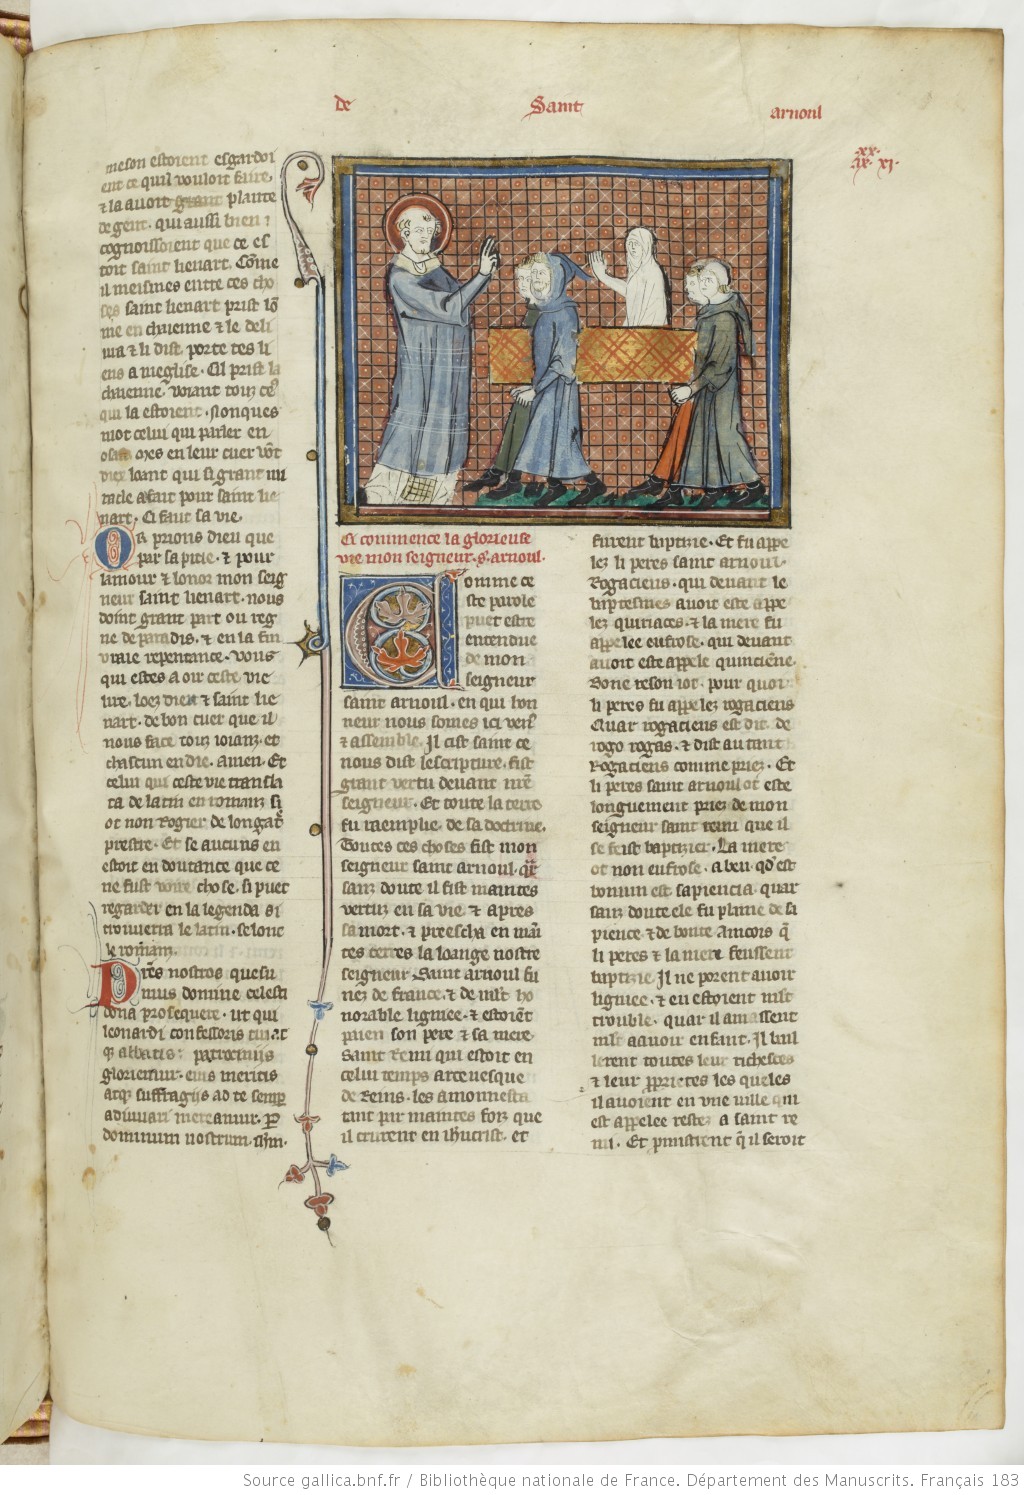 de Saint arnoul
.xx.
ix. xi.
meson estoient esgardoi
ent ce quil vouloit faire.
& la auoit grant plante
de gent. qui aussi bien
cognoissoient que ce es
toit saint lienart. Cōme
il meismes entre ces cho
ses saint lienart prist lō
me en chaienne & le deli
ura & li dist. porte tes li
ens a meglise. Cil prist la
chaienne. voiant touz ceꝰ
qui la estoient. Nonques
mot celui qui parler en
osast. mes en leur cuer vōt
dieu loant qui si grant mi
racle a fait pour saint lie
nart. Ci faut sa vie.
Or prions dieu que
par sa pitie. & pour
lamour & lonor mon seig
neur saint lienart. nous
doint grant part ou reg
ne de paradis. & en la fin
vraie repentance. Vous
qui estes a oir ceste vie
lire. loez dieu & saint lie
nart. de bon cuer que il
nous face touz ioianz. et
chascun en die. amen. Et
celui qui ceste vie transla
ta de latin en romanz si
ot non Rogier de longast
prestre. Et se aucuns en
estoit en doutance que ce
ne fust voire chose. si puet
regarder en la legenda si
trouuera le latin. selonc
le romans.
Pres nostros quesu
mus domine celesti
dona prosequere. ut qui
leonardi confessoris tui at
q; abbatis: patrociniis
gloriemur. eius meritis
atq; suffragiis ad te semp
adiuuari mereamur. P
dominum nostrum. ihm.
Ci commence la glorieuse
vie mon seigneur .s. arnoul.
Comme ce
ste parole
puet estre
entendue
de mon
seigneur
saint arnoul. en qui hon
neur nous somes ici vers
& assemble. Il cist saint ce
nous dist lescripture. fist
grant vertu deuant nrē
seigneur. Et toute la terre
fu raemplie. de sa doctrine.
Toutes ces choses fist mon
seigneur saint arnoul. qr̄
sanz doute il fist maintes
vertuz en sa vie & apres
sa mort. & preescha en mai
tes terres la loange nostre
seigneur. Saint arnoul fu
nez de france. & de mlt ho
norable ligniee. & estoiēt
paien son pere & sa mere.
Saint Remi qui estoit en
celui temps arceuesque
de Reins. les amonnesta
tant par maintes foiz que
il crurent en ihucrist. et
furent baptizie. Et fu appe
lez li peres saint arnoul.
Rogaciens. qui deuant le
baptesmes auoit este appe
lez quiriaces. & la mere fu
appelee eufrose. qui deuant
auoit este appele quinciēne.
Bone reson iot. pour quoi
li peres fu appelez rogaciens
Quar rogaciens est dit de
rogo rogas. & dist autant
Rogaciens comme priez. Et
li peres saint arnoul ot este
longuement priez de mon
seigneur saint remi que il
se feist baptizier. La mere
ot non eufrose. a ben. qd̄ est
bonum est sapiencia. quar
sanz doute ele fu plaine de sa
pience. & de bonte. Aincois q̄
li peres & la mere feussent
baptizie. Il ne porent auoir
ligniee. & en estoient mlt
trouble. quar il amassent
mlt a auoir enfant. Il bail
lerent toutes leur richesces
& leur pprietes les queles
il auoient en vne ville qui
est appelee restez a saint re
mi. Et pmistrent q̄ il seroit
Source gallica.bnf.fr / Bibliothèque nationale de France. Département des Manuscrits. Français 183